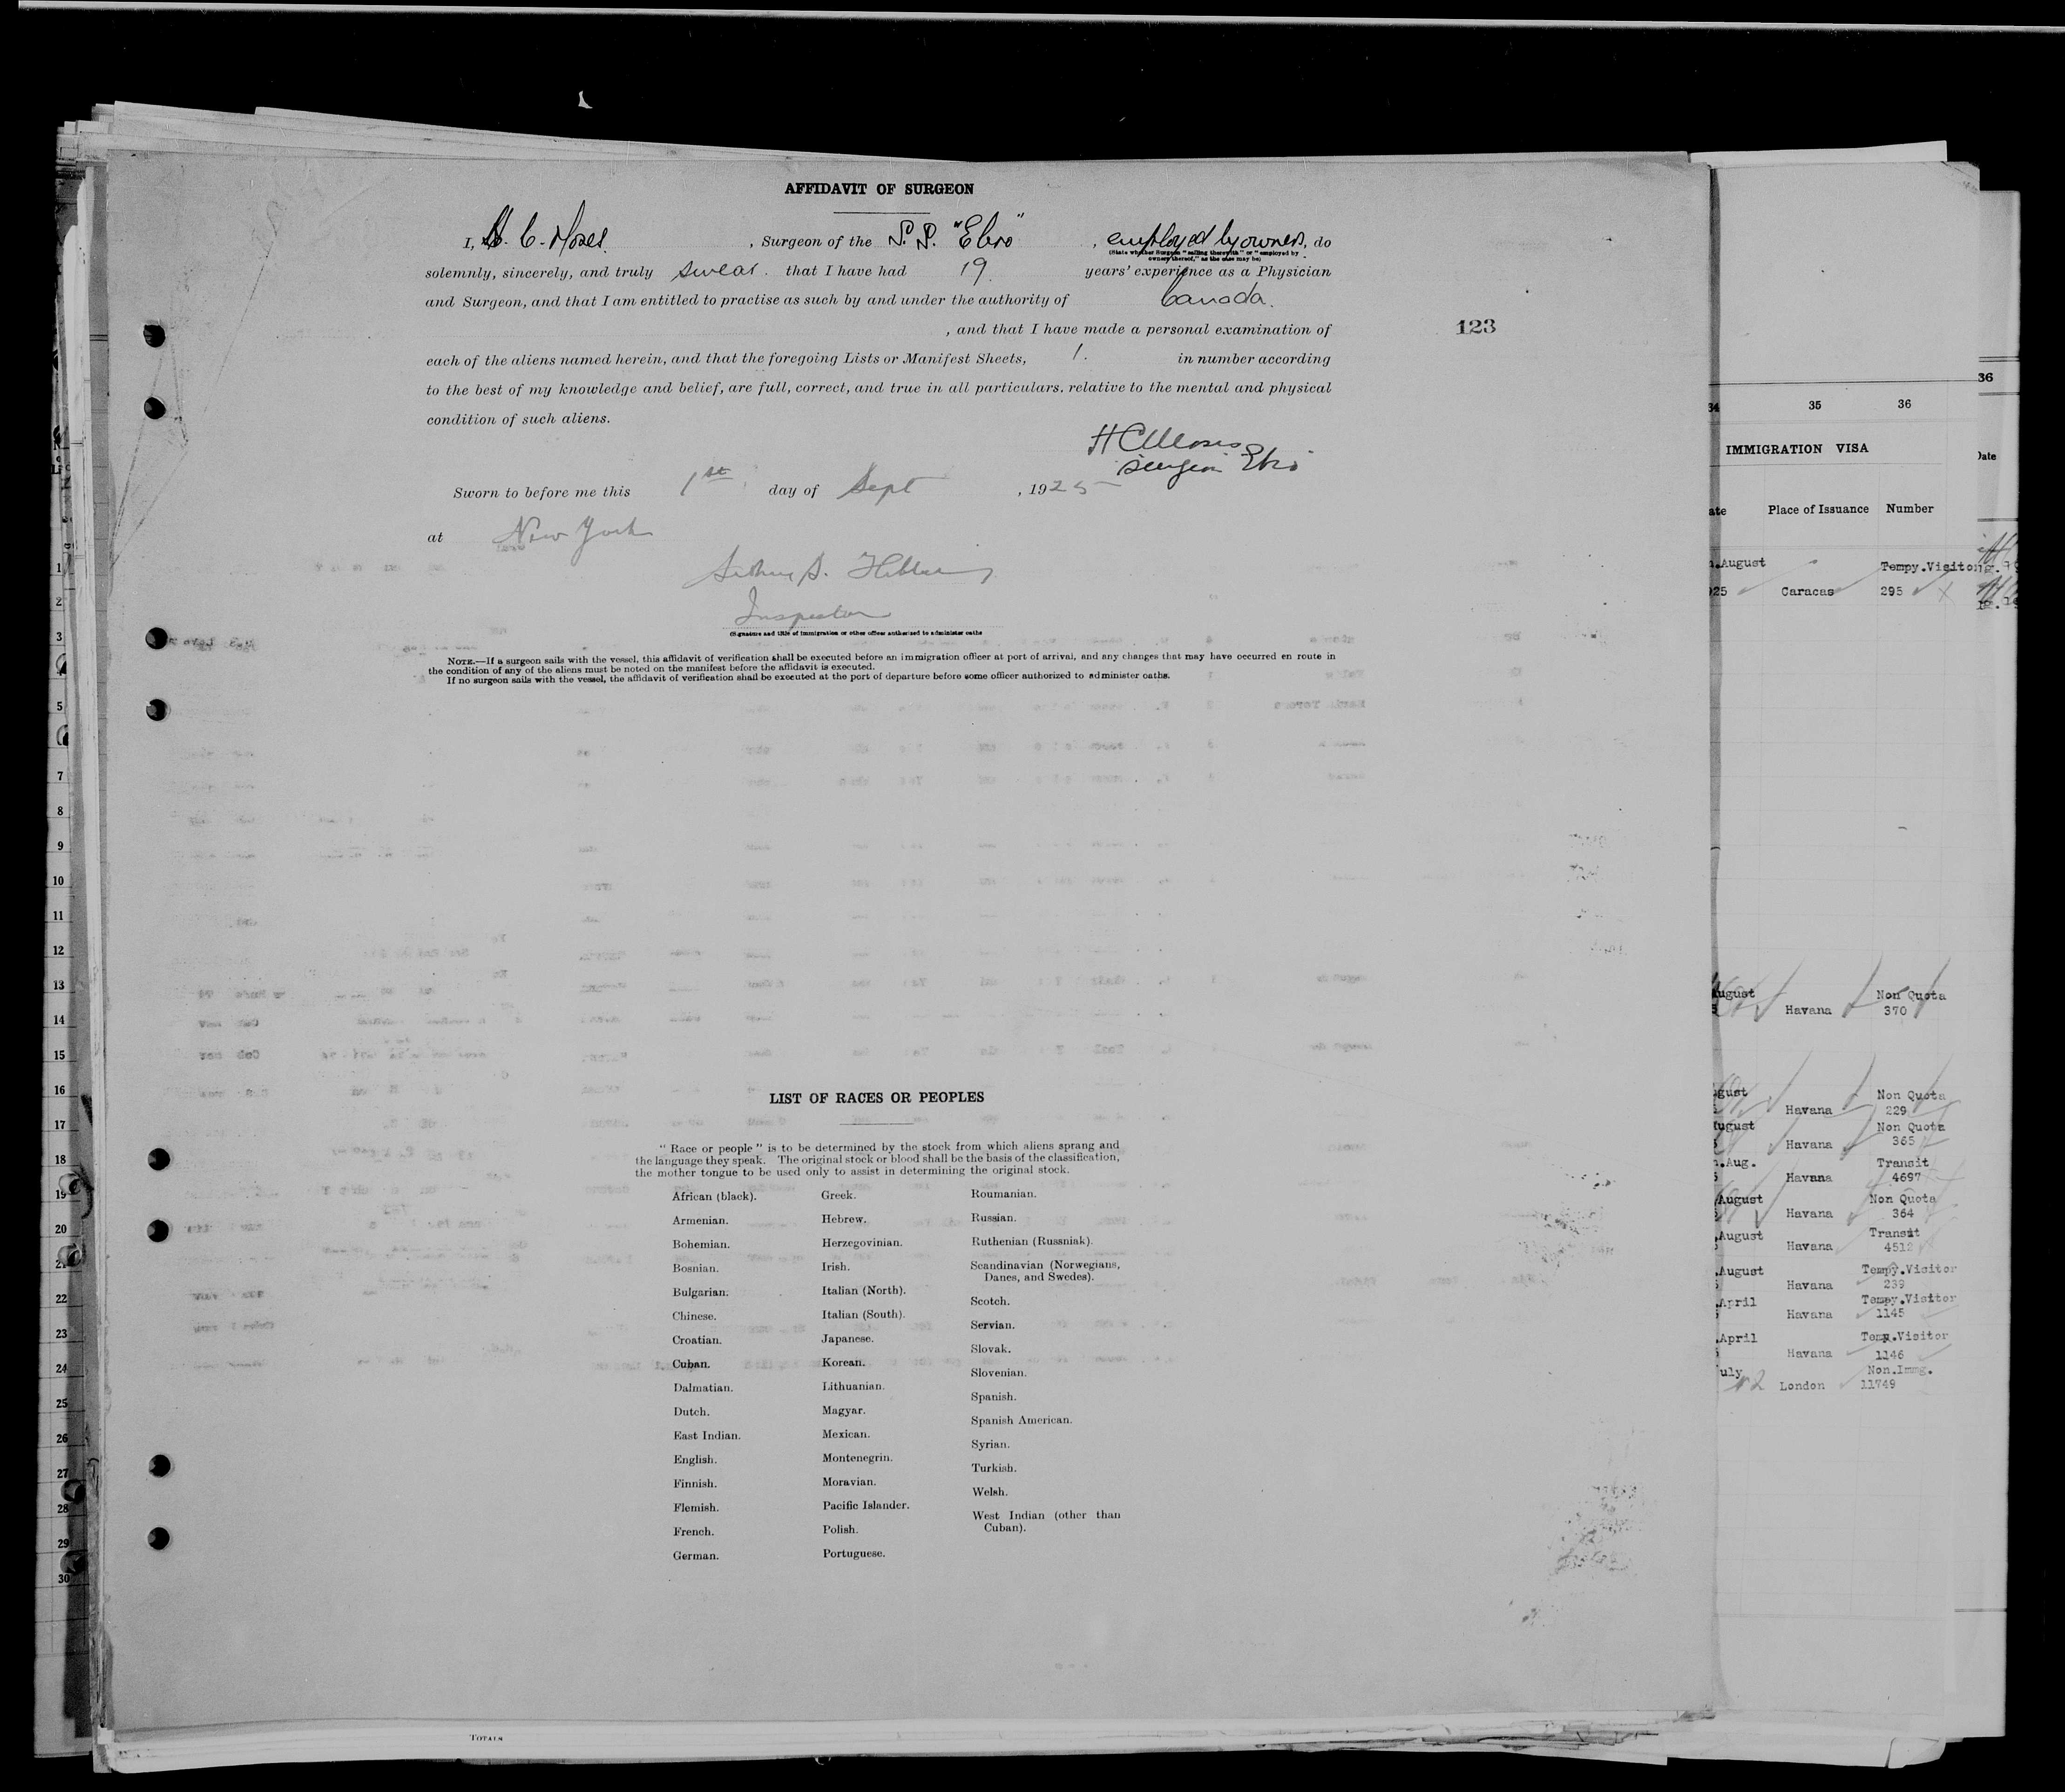 AFFIDAVIT OF SURGEON
I, H. C. Moses, Surgeon of the S.S. "Ebro", employed by owners, do
(State whether Surgeon "sailing therewith" or "employed by
owners thereof," as the case may be)
solemnly, sincerely, and truly swear. that I have had 19 years' experience as a Physician
and Surgeon, and that I am entitled to practise as such by and under the authority of Canada.
, and that I have made a personal examination of
each of the aliens named herein, and that the foregoing Lists or Manifest Sheets, 1. in number according
to the best of my knowledge and belief, are full, correct, and true in all particulars, relative to the mental and physical
condition of such aliens.
123
H C Moses
Surgeon Ebro
Sworn to before me this 1st day of Sept, 1925
at New York
Inspector
(Signature and title of immigration or other officer authorised to administer oaths
NOTE.—If a surgeon sails with the vessel, this affidavit of verification shall be executed before an immigration officer at port of arrival, and any changes that may have occurred en route in
the condition of any of the aliens must be noted on the manifest before the affidavit is executed.
If no surgeon sails with the vessel, the affidavit of verification shall be executed at the port of departure before some officer authorized to administer oaths.
LIST OF RACES OR PEOPLES
"Race or people" is to be determined by the stock from which aliens sprang and
the language they speak. The original stock or blood shall be the basis of the classification,
the mother tongue to be used only to assist in determining the original stock.
African (black).
Armenian.
Bohemian.
Bosnian.
Bulgarian.
Chinese.
Croatian.
Cuban.
Dalmatian.
Dutch.
East Indian.
English.
Finnish.
Flemish.
French.
German.
Greek.
Hebrew.
Herzegovinian.
Irish.
Italian (North).
Italian (South).
Japanese.
Korean.
Lithuanian.
Magyar.
Mexican.
Montenegrin.
Moravian.
Pacific Islander.
Polish.
Portuguese.
Roumanian.
Russian.
Ruthenian (Russniak).
Scandinavian (Norwegians,
Danes, and Swedes).
Scotch.
Servian.
Slovak.
Slovenian.
Spanish.
Spanish American.
Syrian.
Turkish.
Welsh.
West Indian (other than
Cuban).
1
2
3
4
5
7
8
9
10
11
12
13
14
15
16
17
18
19
20
21
22
23
24
25
26
27
28
29
30
TOTALS
36
34 35 36
IMMIGRATION VISA
Place of Issuance Number
August Tempy.Visitor
Caracas 295
August Non Quota
Havana 370
Non Quota
Havana 229
Non Quota
Havana 365
Aug. Transit
Havana 4697
August Non Quota
Havana 364
August Transit
Havana 4512
August Tempy.Visitor
Havana 239
April Tempy.Visitor
Havana 1145
April Temp.Visitor
Havana 1146
Non.Immg.
London 11749